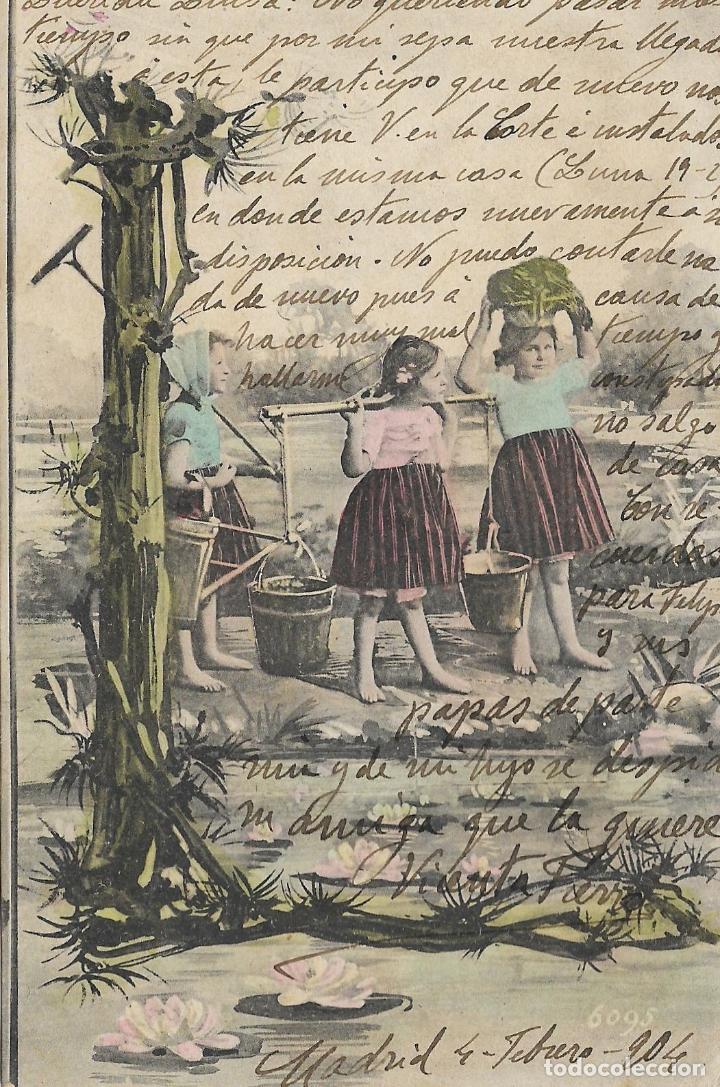 Querida Luisa: No queriendo pasar mas
tiempo sin que por mi sepa nuestra llegada
á esta, le participo que de nuevo nos
tiene V. en la Corte é instalados
en la misma casa (Luna 19-2
en donde estamos nuevamente á su
disposición. No puedo contarle na
da de nuevo pues á causa de
hacer muy mal tiempo y
hallarme constipada
no salgo
de casa
Con re
cuerdos
para Felipe
y sus
papas de parte
mia y de mi hijo se despide
su amiga que la quiere
Vicenta
6095
Madrid 4-Febrero-904
todocoleccion
todocoleccion.net